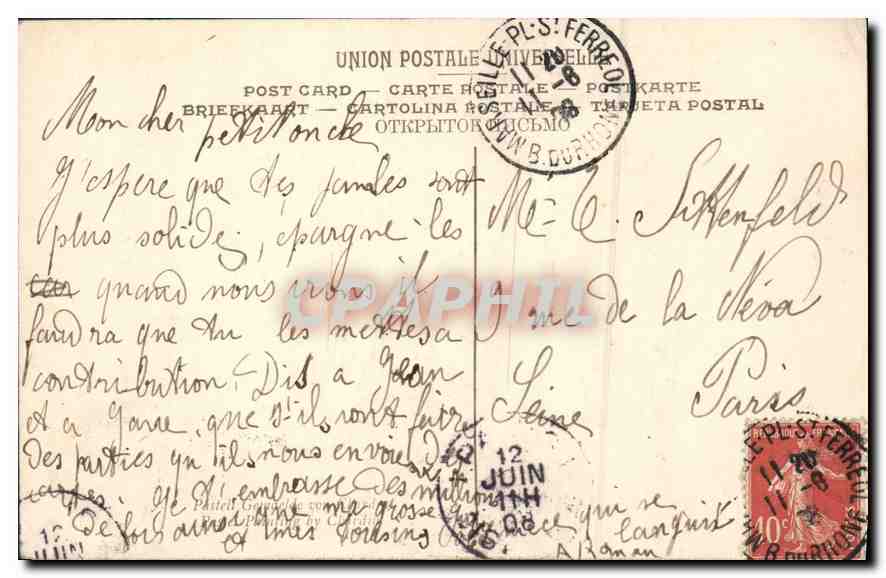 UNION POSTALE UNIVERSELLE
POST CARD — CARTE POSTALE — POSTKARTE
BRIEFKAART — CARTOLINA POSTALE — TARJETA POSTAL
ОТКРЫТОЕ ПИСЬМО
MARSEILLE-PL-ST FERREOL
11 20
11 -6
08
B. DU RHONE
Mon cher petit oncle
J'espere que tes jambes sont
plus solide, épargne les
car quand nous irons il
faudra que tu les mettes a
contribution. Dis a Jean
et a que s'ils font faire
des parties qu'ils nous envoient des
cartes. Je t'embrasse des millions
de fois ainsi que ma grosse qui se
et mes cousins languit
M E. Sittenfeld
9 rue de la Néva
Paris
Seine
CPAPHIL
12
JUIN
11H
08
12
JUIN
10c
LLE-PL-ST FERREOL
11 20
11 -6
B. DU RHONE